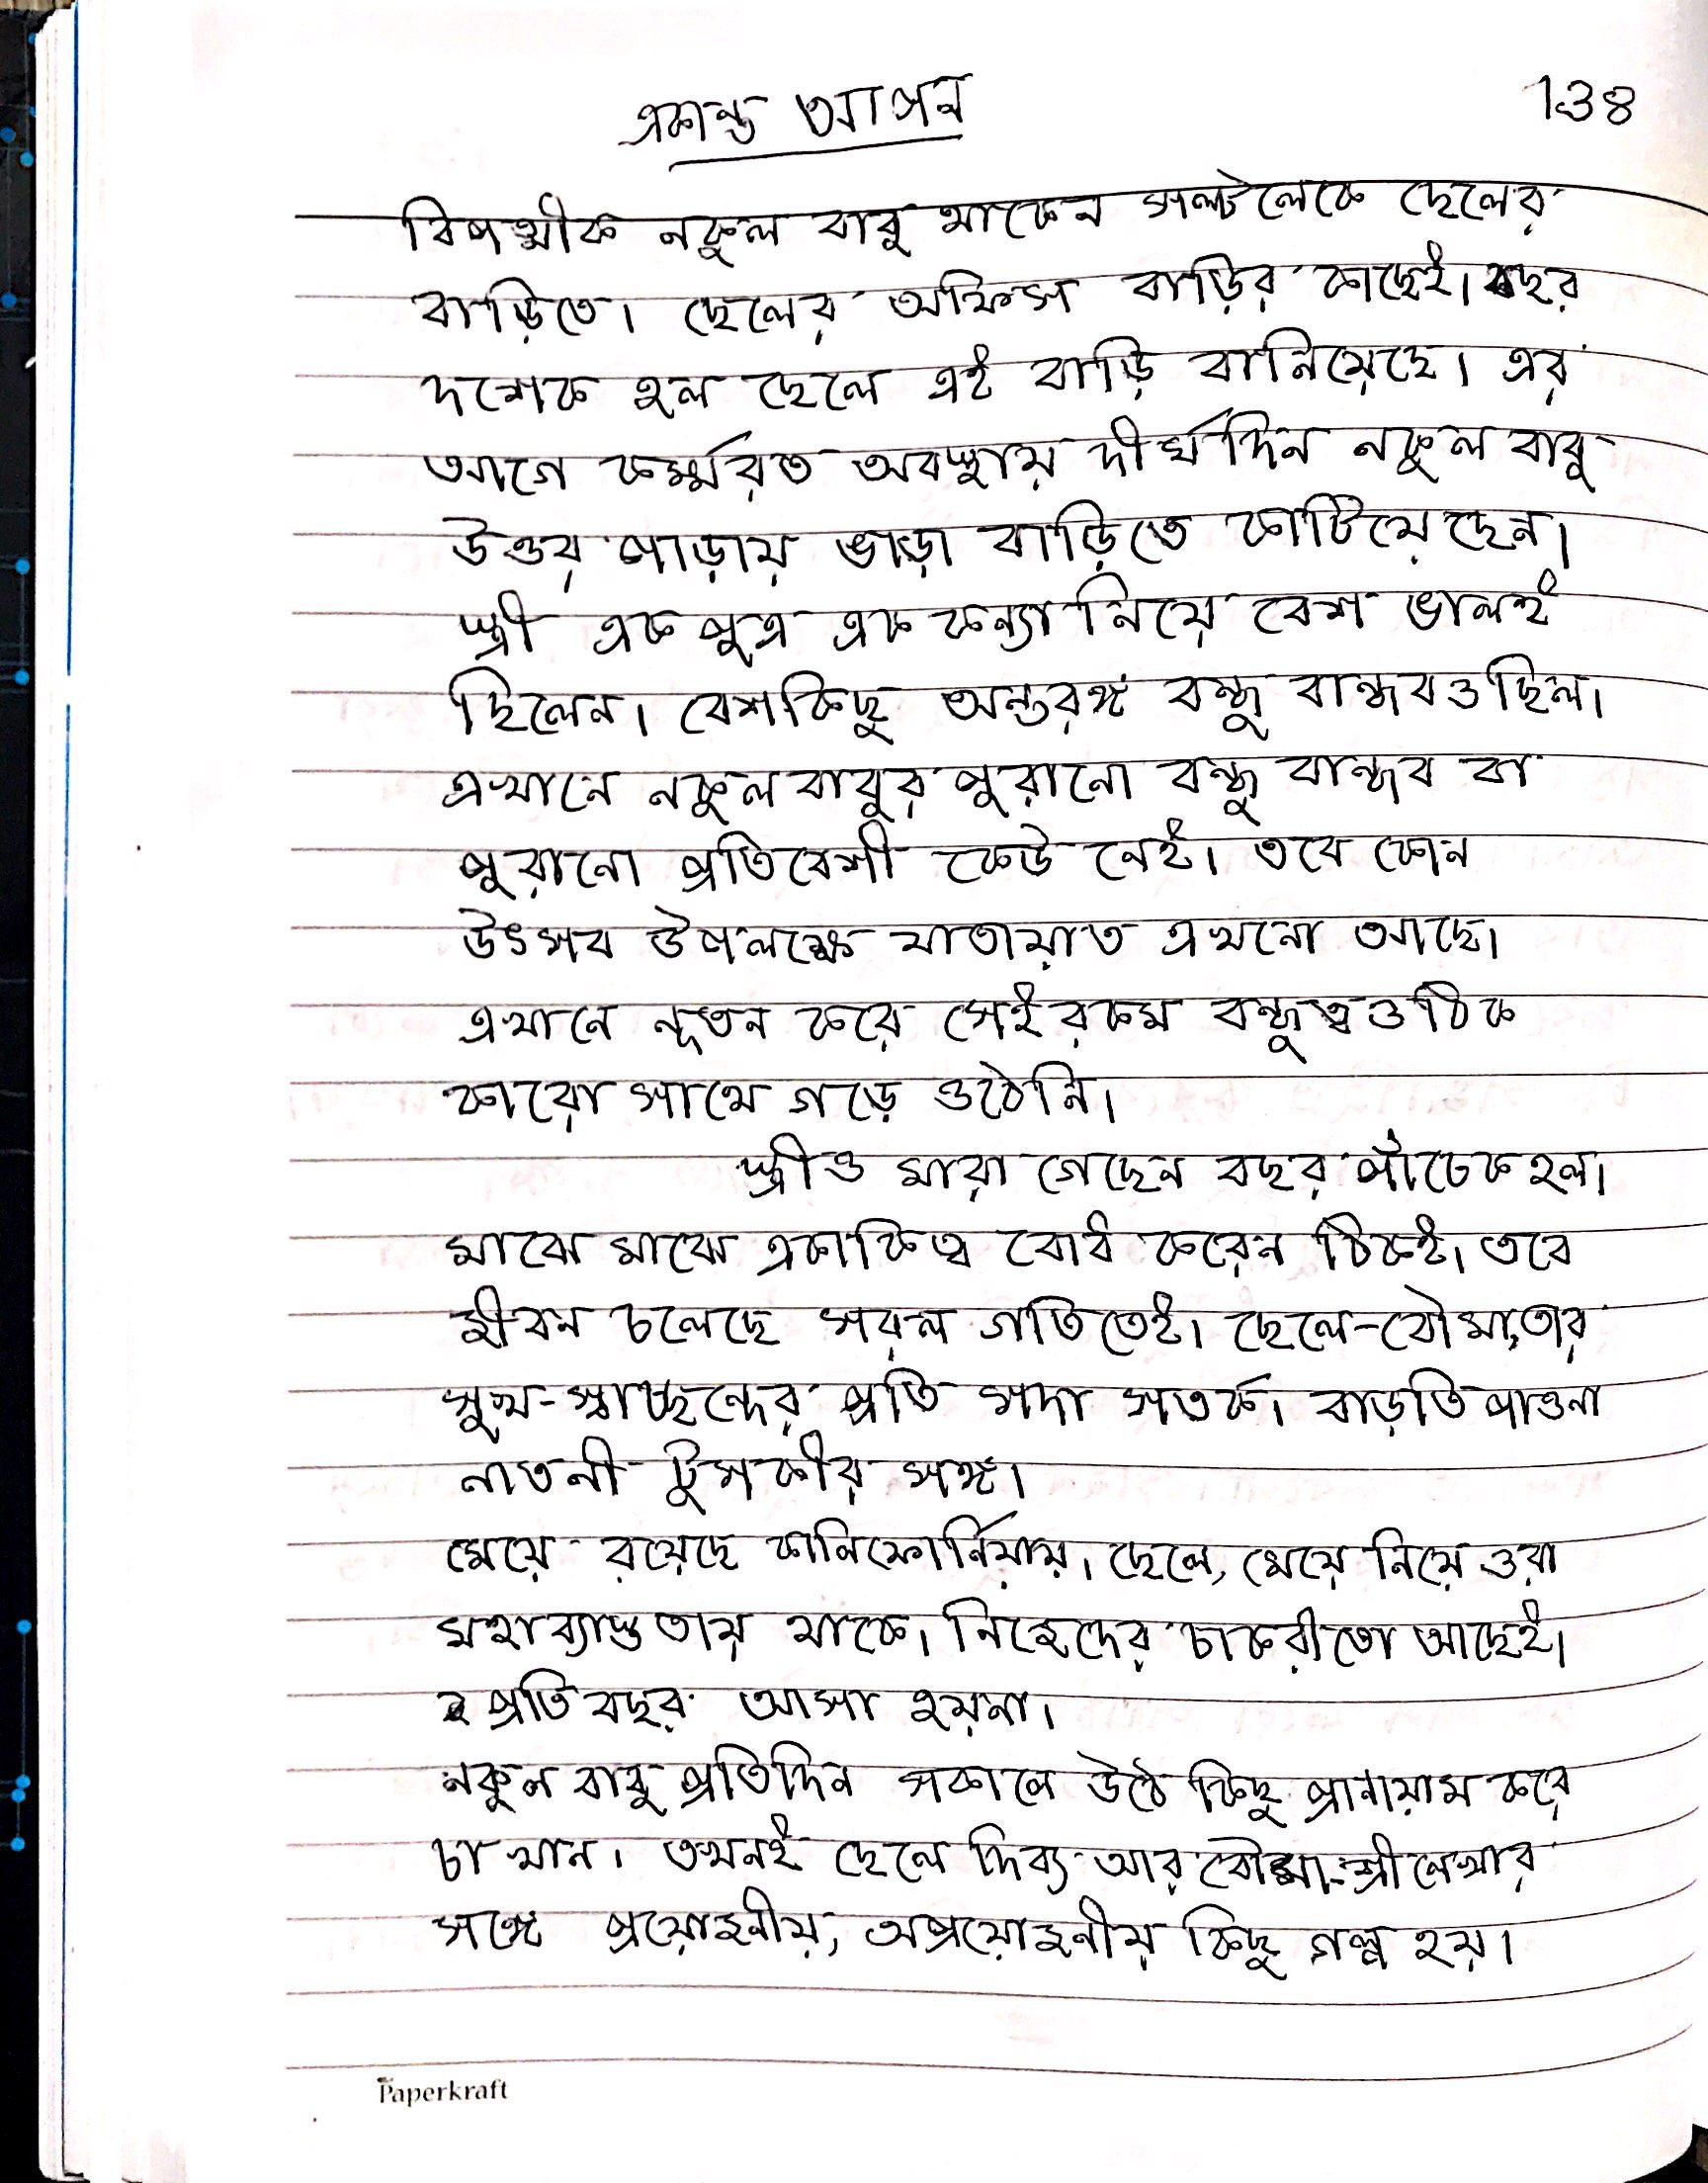 একান্ত আপন
138
বিপত্মীক নকুল বাবু থাকেন সল্টলেকে ছেলের
বাড়িতে। ছেলের অফিস বাড়ির কাছেই। বছর
দশেক হল ছেলে এই বাড়ি বানিয়েছে। এর
আগে কর্ম্মরত অবস্থায় দীর্ঘদিন নকুল বাবু
উত্তর পাড়ায় ভাড়া বাড়িতে কাটিয়েছেন।
স্ত্রী এক পুত্র এক কন্যা নিয়ে বেশ ভালই
ছিলেন। বেশকিছু অন্তরঙ্গ বন্ধু বান্ধবও ছিল।
এখানে নকুল বাবুর পুরানো বন্ধু বান্ধব বা
পুরানো প্রতিবেশী কেউ নেই। তবে কোন
উৎসব উপলক্ষে যাতায়াত এখনো আছে।
এখানে নূতন করে সেইরকম বন্ধুত্বও ঠিক
কারো সাথে গড়ে ওঠেনি।
স্ত্রীও মারা গেছেন বছর পাঁচেক হল।
মাঝে মাঝে একাকিত্ব বোধ করেন ঠিকই। তবে
জীবন চলেছে সরল গতিতেই। ছেলে-বৌমা,তার
সুখ-স্বাচ্ছন্দের প্রতি সদা সতর্ক। বাড়তি পাওনা
নাতনী টুসকীর সঙ্গ।
মেয়ে রয়েছে কালিফোর্নিয়ায়। ছেলে, মেয়ে নিয়ে ওরা
মহাব্যাস্ততায় থাকে। নিজেদের চাকরীতো আছেই।
প্রতি বছর আসা হয়না।
নকুল বাবু প্রতিদিন সকালে উঠে কিছু প্রানায়াম করে
চা খান। তখনই ছেলে দিব্য আর বৌমা-শ্রীলেখার
সঙ্গে প্রয়োজনীয়, অপ্রয়োজনীয় কিছু গল্প হয়।
Paperkraft